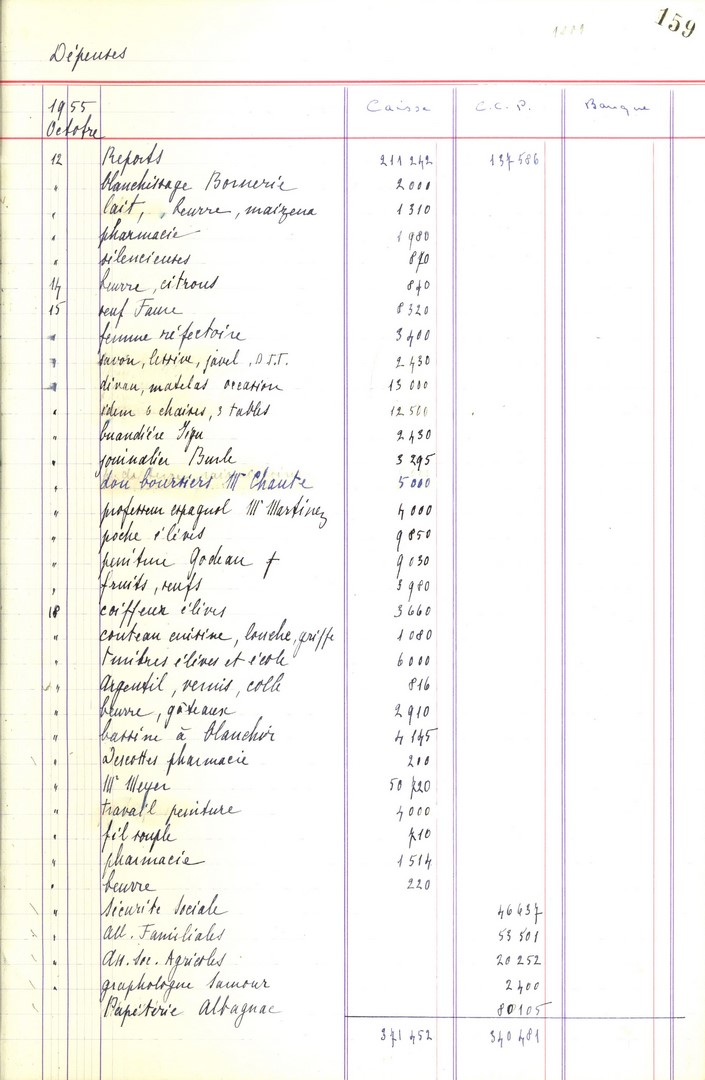 159
Dépenses
1955 Caisse C.C.P. Banque
Octobre
12 Reports 211 242 137 586
" blanchissage Bornerie 2 000
" lait, beurre, maïzena 1 310
" pharmacie 1 980
" silencieuses 870
14 beurre, citrons 840
15 oeuf Faure 8 320
" femme réfectoire 3 400
" savon, lessive, javel, D.D.T. 2 430
" divan, matelas occasion 13 000
" idem 6 chaises, 3 tables 12 500
" buandière 2 430
" journalier Burle 3 295
" don boursiers Mr Chaute 5 000
" professeur espagnol Mr Martinez 4 000
" poche élèves 9 850
" peinture Godeau + 9 030
" fruits, oeufs 3 980
18 coiffeur élèves 3 660
" couteau cuisine, louche, griffe 1 080
" timbres élèves et école 6 000
" Argentil, vernis, colle 816
" beurre, gâteaux 2 910
" bassine à blanchir 4 145
" Descottes pharmacie 200
" Mr Meyer 50 720
" travail peinture 4 000
" fil souple 710
" pharmacie 1 514
" beurre 220
" Sécurité Sociale 46 637
" All. Familiales 53 501
" Ass. Soc. Agricoles 20 252
" graphologue Samour 2 400
Papéterie Albagnac 80 105
371 452 340 481